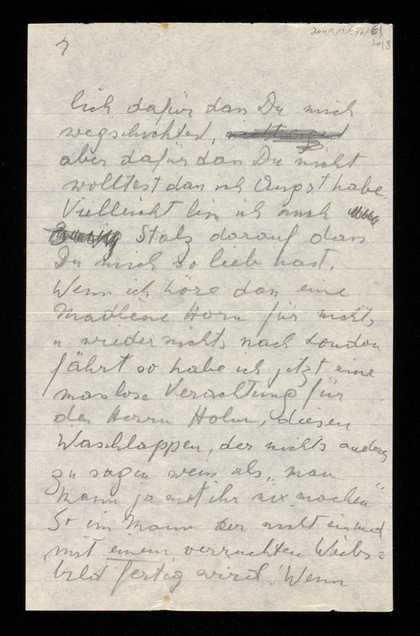 7
lich dafür dan Du mich
wegschicktest,
aber dafür dan Du nicht
wolltest dan ich Angst habe.
Vielleicht bin ich auch
Stolz darauf dan
Du mich so lieb hast.
Wenn ich höre dan eine
Madleine Horn für nichts
u. wieder nichts nach London
fährt so habe ich jetzt eine
maslose Verachtung für
den Herrn Holm, diesen
Waschlappen, der nichts anders
zu sagen weis als „man
kann ja mit ihr nix machen"
So im Mann der nicht einmal
mit einem verruchten Weibs=
bild fertig wird. Wenn